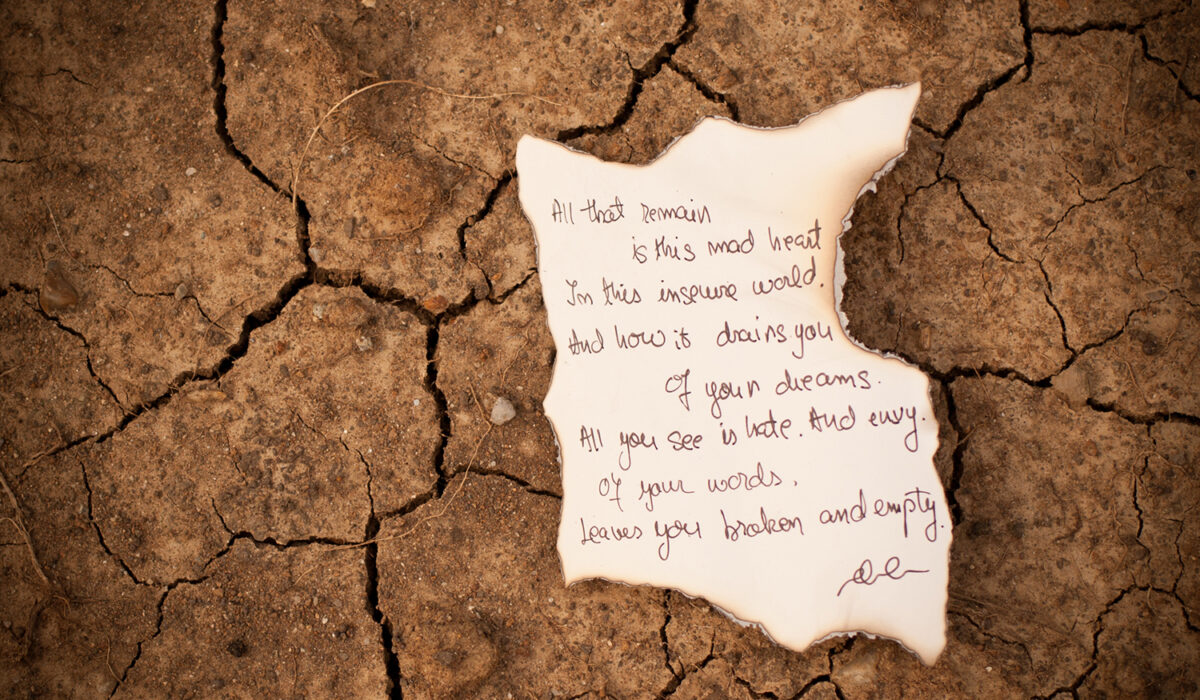 All that remain
is this mad heart
In this insecure world.
And how it drains you
Of your dreams.
All you see is hate. And envy.
Of your words.
Leaves you broken and empty.